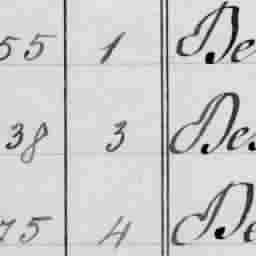 55 1 De
38 3 Des
75 4 De